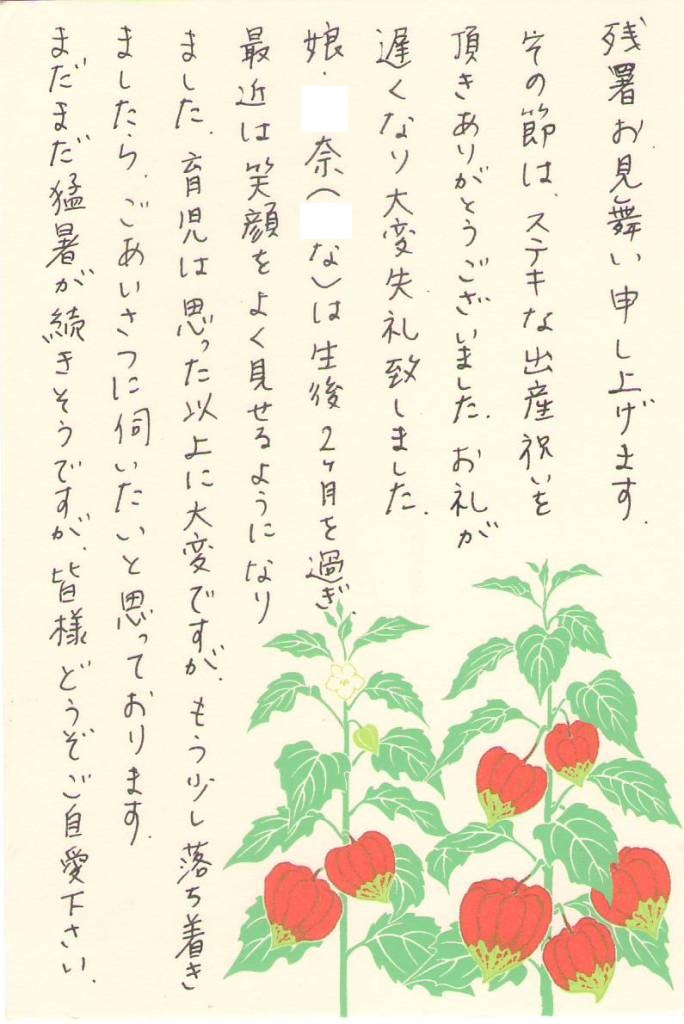 残署お見舞い申し上げます.
その節は、ステキな出産祝いを
頂きありがとうございました. お礼が
遅くなり大変失礼致しました.
娘・ 奈( な)は生後2ヶ月を過ぎ、
最近は笑顔をよく見せるようになり
ました. 育児は思った以上に大変ですが、もう少し落ち着き
ましたら、ごあいさつに伺いたいと思っております.
まだまだ猛暑が続きそうですが、皆様どうぞご自愛下さい.